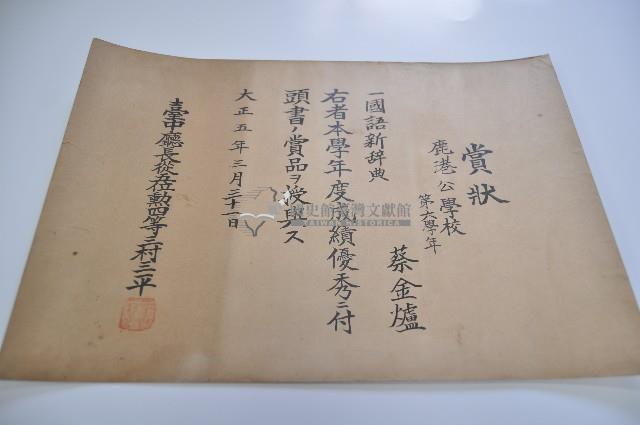 賞狀
鹿港公學校
第六學年
蔡金爐
一國語新辞典
右者本學年度成績優秀ニ付
頭書ノ賞品ヲ授與ス
大正五年三月三十一日
臺中廳長從五位勳四等三村三平
國史館臺灣文獻館
TAIWAN HISTORICA